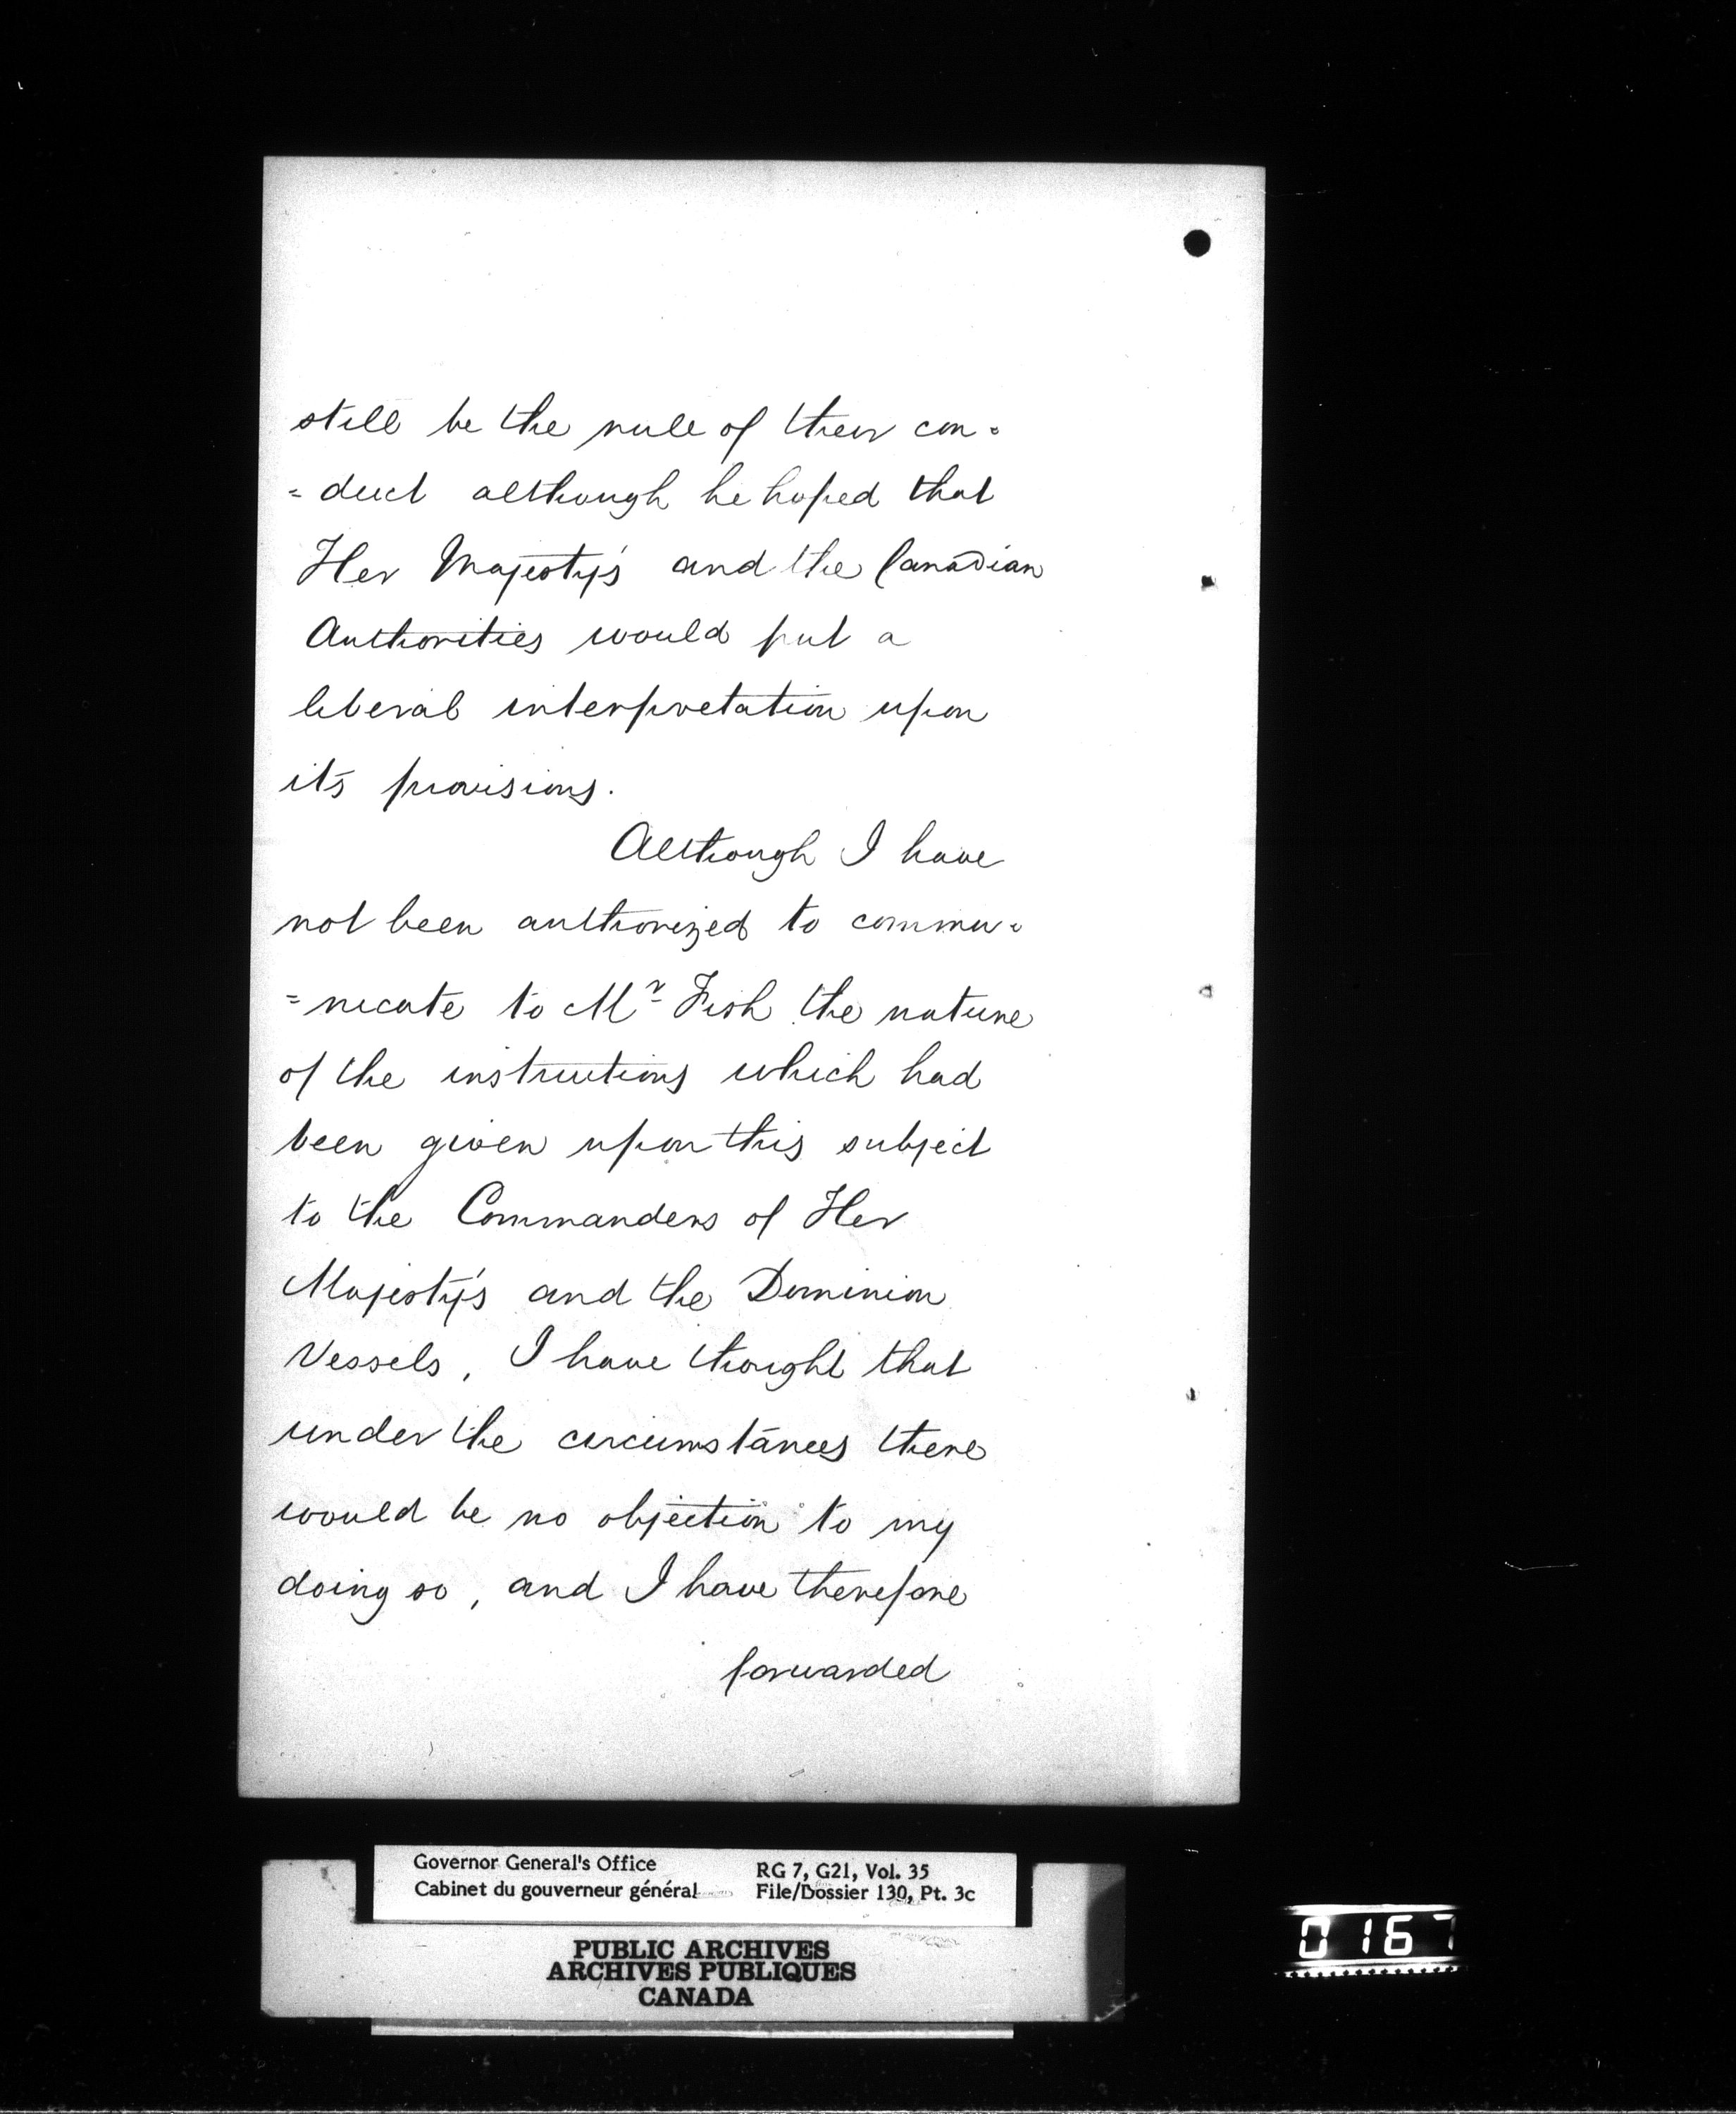 still be the rule of their con=
=duct although he hoped that
Her Majesty's and the Canadian
Authorities would put a
liberal interpretation upon
its provisions.
Although I have
not been authorized to commu=
=nicate to Mr Fish the nature
of the instructions which had
been given upon this subject
to the Commanders of Her
Majesty's and the Dominion
Vessels, I have thought that
under the circumstances there
would be no objection to my
doing so, and I have therefore
forwarded
Governor General's Office
Cabinet du gouverneur général
RG 7, G21, Vol. 35
File/Dossier 130, Pt. 3c
PUBLIC ARCHIVES
ARCHIVES PUBLIQUES
CANADA
0167